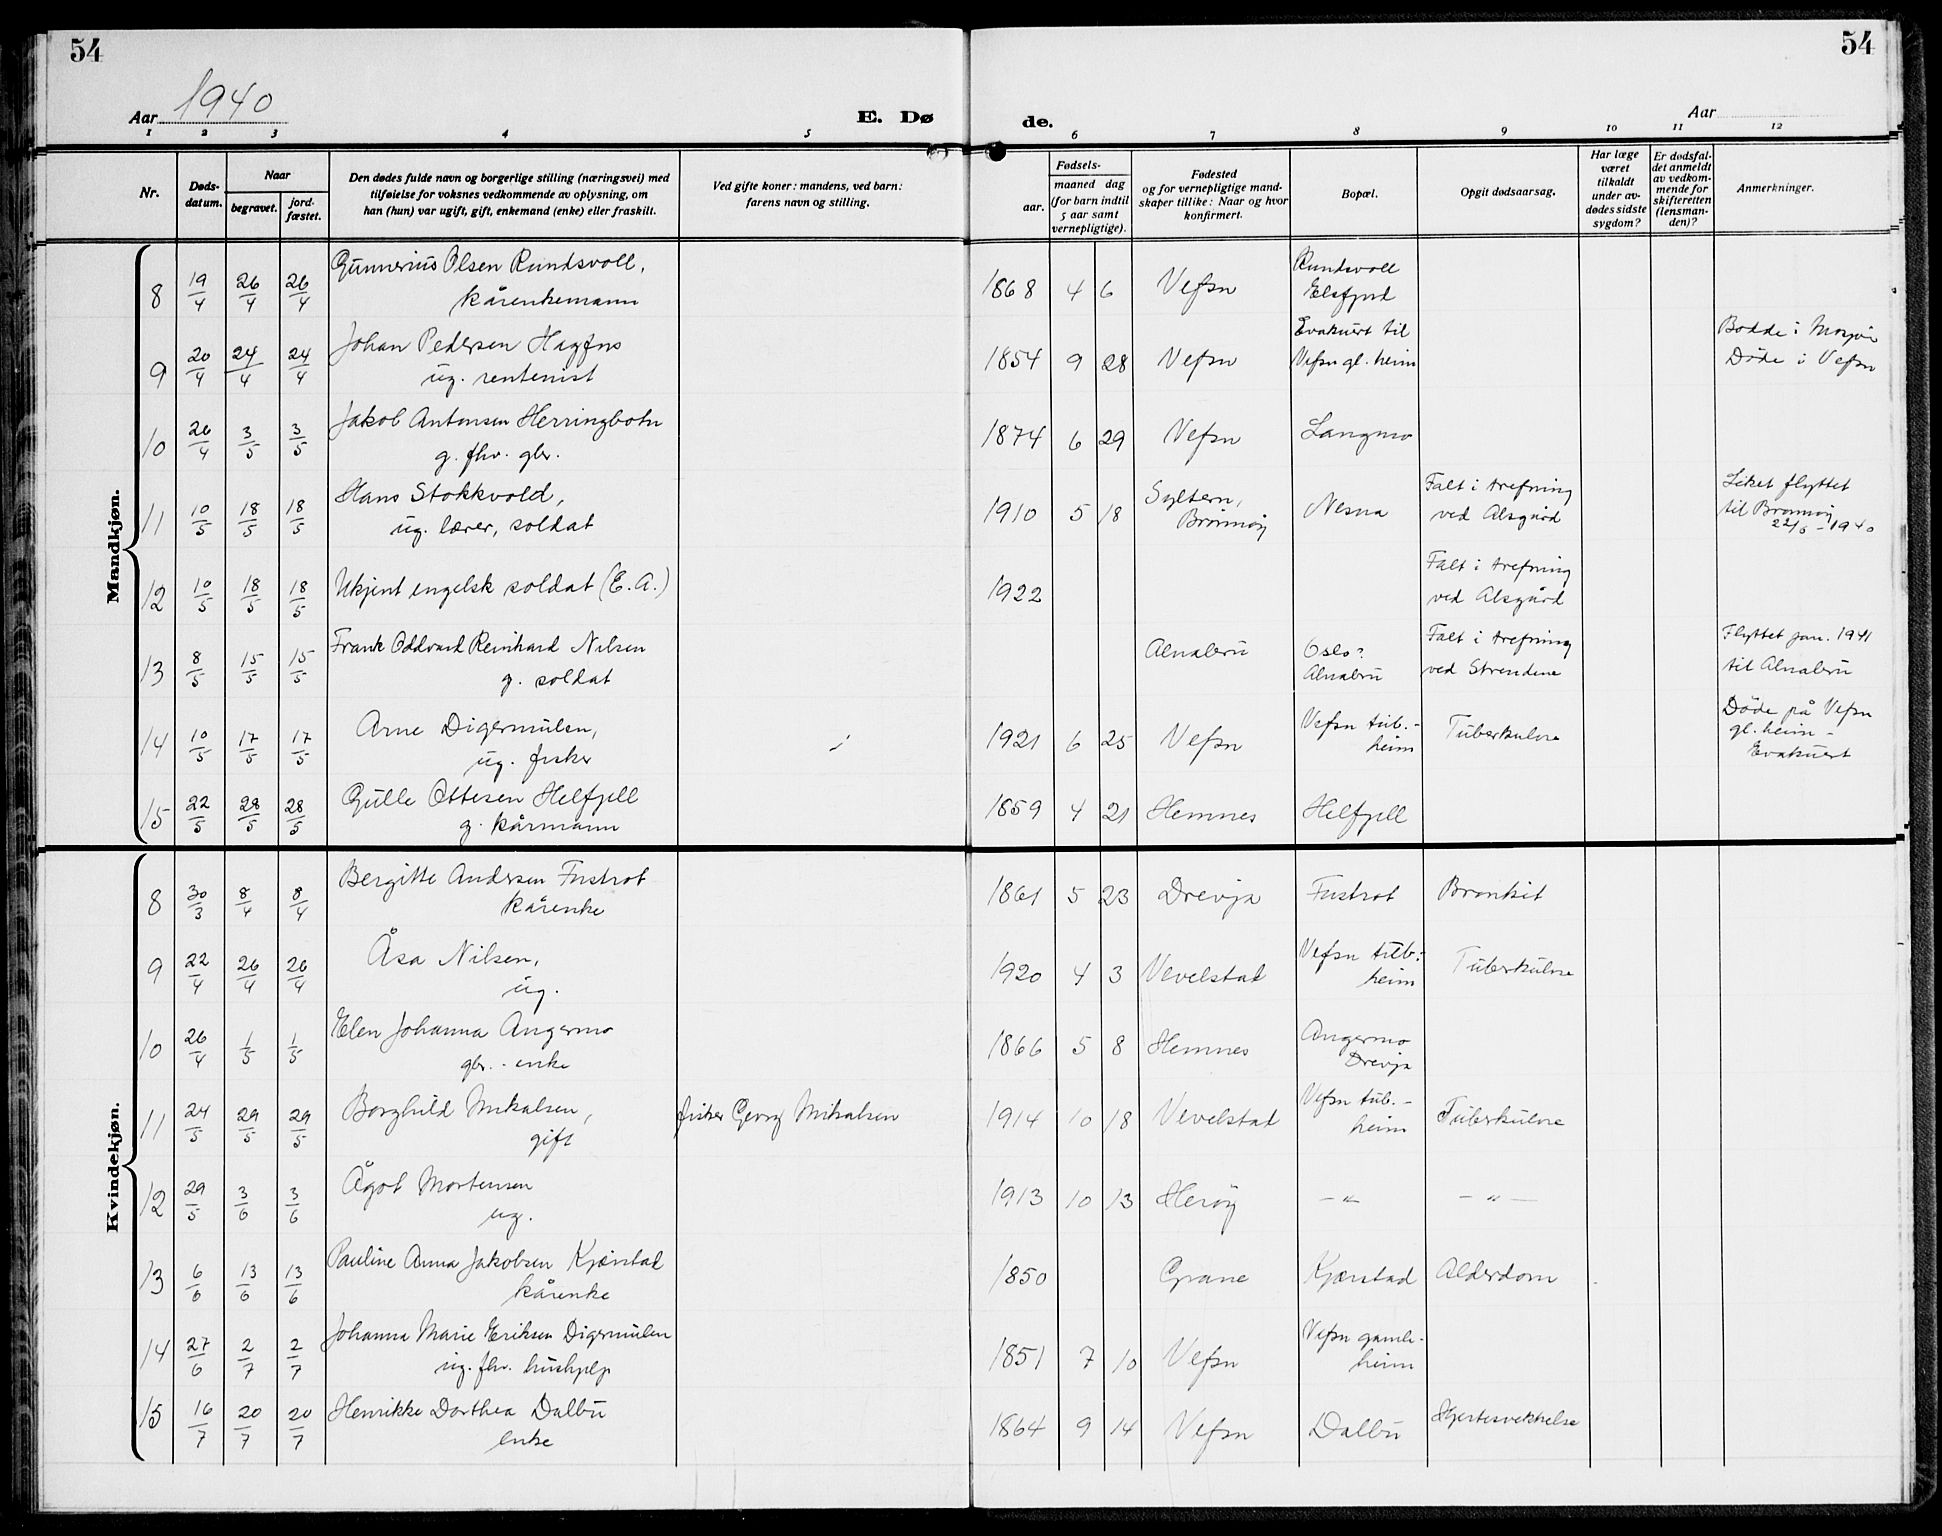 54
54
Aar 1940
E. Dø
de.
Aar
1 2 3 4 5 6 7 8 9 10 11 12
Nr.
Døds-
datum.
Naar
begravet.
jord-
fæstet.
Den dødes fulde navn og borgerlige stilling (næringsvei) med
tilføielse for voksnes vedkommende av oplysning, om
han (hun) var ugift, gift, enkemand (enke) eller fraskilt.
Ved gifte koner: mandens, ved barn:
farens navn og stilling.
Fødsels-
aar.
maaned dag
(for barn indtil
5 aar samt
vernepligtige).
Fødested
og for vernepligtige mand-
skaper tillike: Naar og hvor
konfirmert.
Bopæl.
Opgit dødsaarsag.
Har læge
været
tilkaldt
under av-
dødes sidste
sygdom?
Er dødsfal-
det anmeldt
av vedkom-
mende for
skifteretten
(lensman-
den)?
Anmerkninger.
Mandkjøn.
8 19/4 26/4 26/4 Gunnerius Olsen Rundsvoll, 1868 4 6 Vefsn Rundsvoll
kårenkemann Elsfjord
9 20/4 24/4 24/4 Johan Pedersen Hagfns 1854 9 28 Vefsn Evakuert til Bodde i Mosjøen
ug. rentenist Vefsn gl. heim Döde i Vefsn
10 26/4 3/5 3/5 Jakob Antonsen Herringbotn 1874 6 29 Vefsn Langmo
g. fhv. gbr.
11 10/5 18/5 18/5 Hans Stokkvold, 1910 5 18 Syltern, Nesna Falt i trefning Liket flyttet
ug. lærer, soldat Brønnøy ved Alsgård til Brønnøy
22/5 - 1940
12 10/5 18/5 18/5 Ukjent engelsk soldat (E. A.) 1922 Falt i trefning
ved Alsgård
13 8/5 15/5 15/5 Frank Oddvard Reinhard Nilsen Alnabru Oslo? Falt i trefning Flyttet jan. 1941
g. soldat Alnabru ved Strendene til Alnabru
14 10/5 17/5 17/5 Arne Digermulen, 1921 6 25 Vefsn Vefsn tub.- Tuberkulose Döde på Vefsn
ug. fisker heim gl. heim -
Evakuert
15 22/5 28/5 28/5 Gulle Ottesen Helfjell 1859 4 21 Hemnes Helfjell
g. kårmann
Kvindekjøn.
8 30/3 8/4 8/4 Bergitte Andersen Fustrot 1861 5 23 Drevja Fustrot Bronkit
kårenke
9 22/4 26/4 26/4 Åsa Nilsen, 1920 4 3 Vevelstad Vefsn tub.- Tuberkulose
ug. heim
10 26/4 1/5 1/5 Elen Johanna Angermo 1866 5 8 Hemnes Angermo
gbr.- enke Drevja
11 24/5 29/5 29/5 Borghild Mikalsen, fisker Georg Mikalsen 1914 10 18 Vevelstad Vefsn tub.- Tuberkulose
gift heim
12 29/5 3/6 3/6 Ågot Mortensen 1913 10 13 Herøy - " - - " -
ug.
13 6/6 13/6 13/6 Pauline Anna Jakobsen Kjærstad 1850 Grane Kjærstad Alderdom
kårenke
14 27/6 2/7 2/7 Johanna Marie Eriksen Digermulen 1851 7 10 Vefsn Vefsn gamle-
ug. fhv. hushjelp heim
15 16/7 20/7 20/7 Henrikke Dorthea Dalbu 1864 9 14 Vefsn Dalbu Hjertesvekkelse
enke